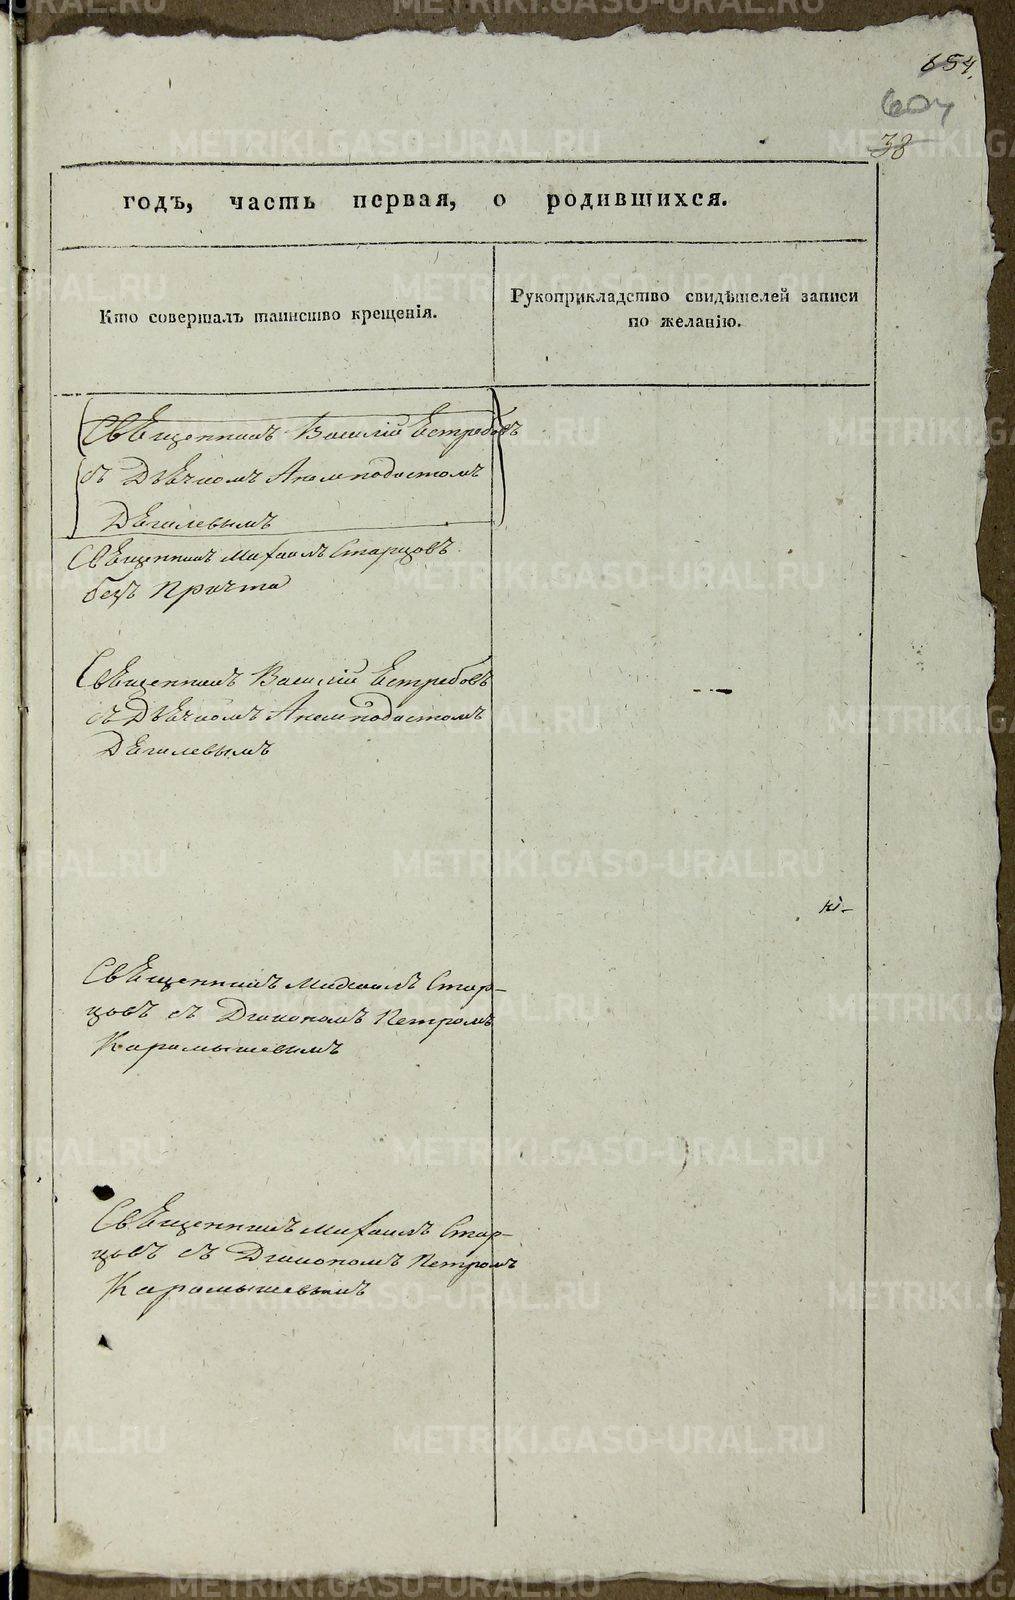 654.
604
38
годъ, часть первая, о родившихся.
Кто совершалъ таинство крещенія.
Рукоприкладство свидѣтелей записи
по желанію.
Священникъ Василій Ястребовъ
съ Дьячкомъ Анемподистомъ
Дягилевымъ
Священникъ Михаилъ Старцовъ
безъ Причта
Священникъ Василій Ястребовъ
съ Дьячкомъ Анемподистомъ
Дягилевымъ
Священникъ Михаилъ Стар-
цовъ съ Діакономъ Петромъ
Карамышевымъ
Священникъ Михаилъ Стар-
цовъ съ Діакономъ Петромъ
Карамышевымъ
METRIKI.GASO-URAL.RU